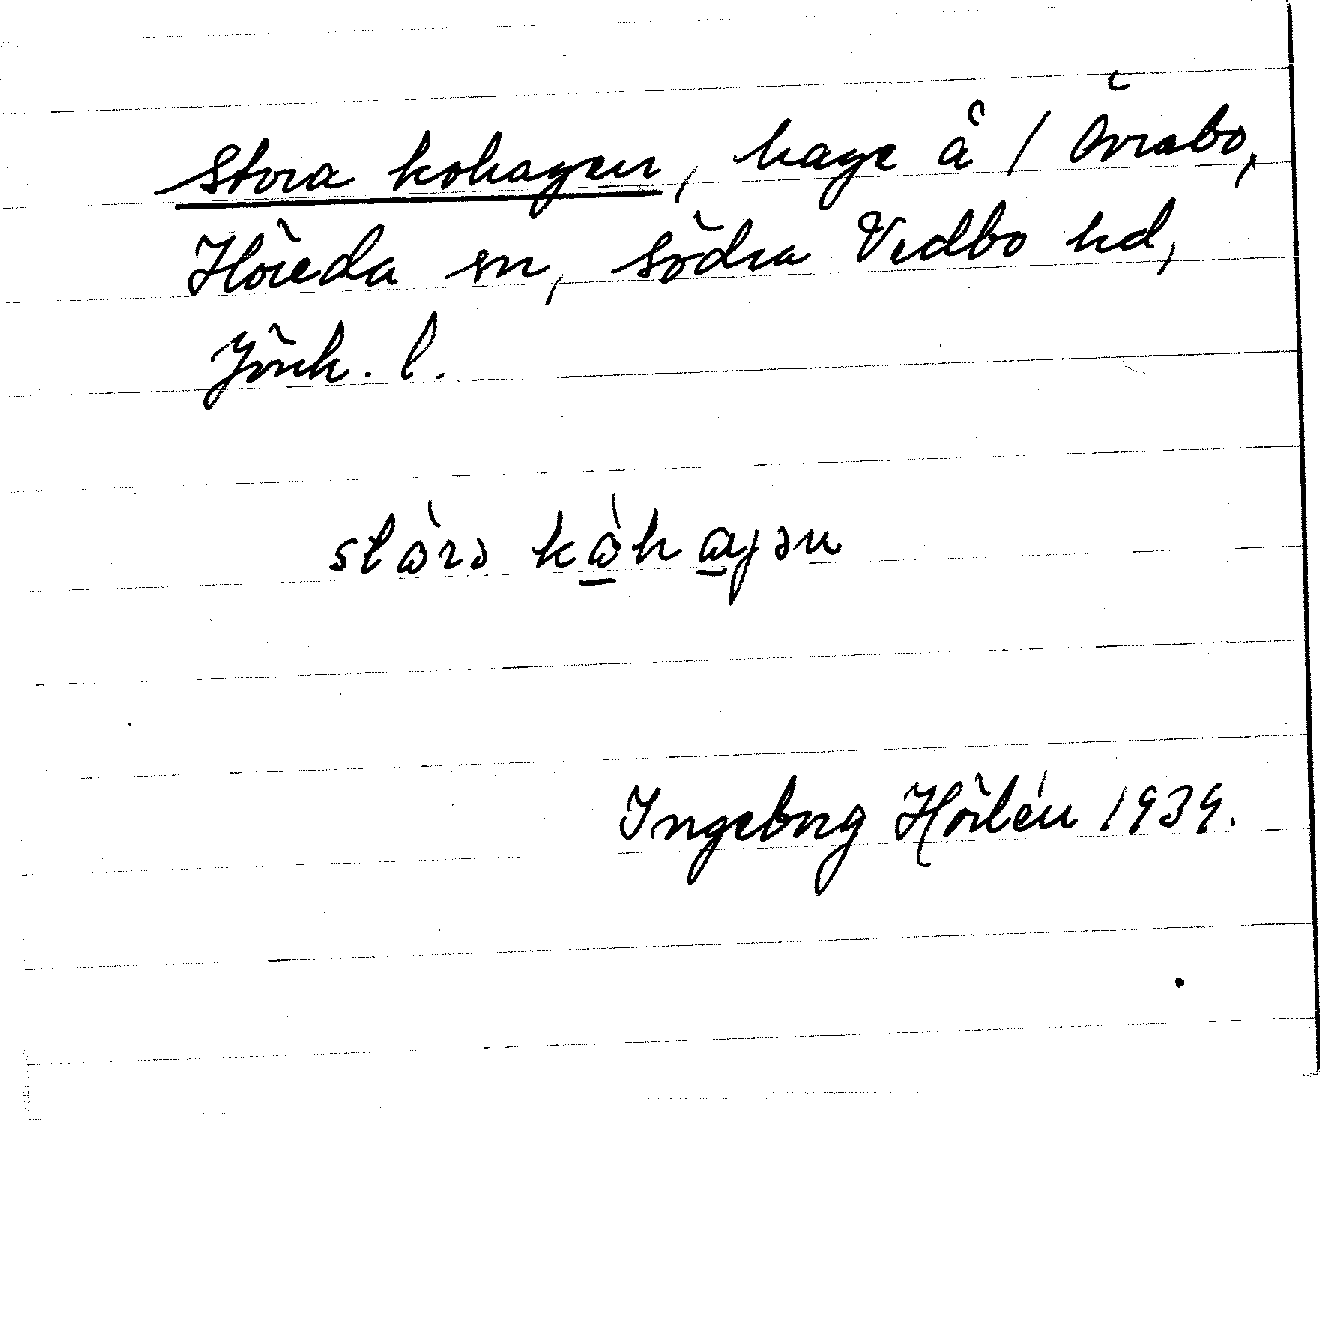 Stora kohagen, hage å / Övrabo,
Höreda sn, södra Vedbo hd,
Jönk. l.
stòrə kòhagən
Ingeborg Hörlén 1939.